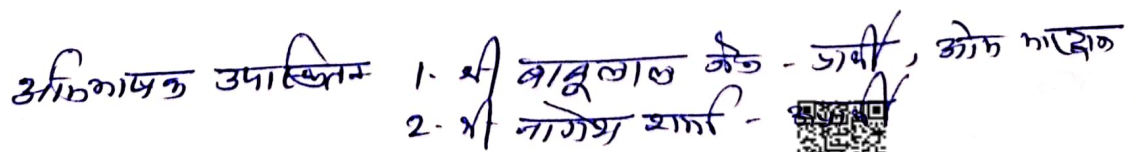 अभिभाषक उपस्थित 1. श्री बाबूलाल जैन - प्रार्थी, ओम
2. श्री नागेश शर्मा -